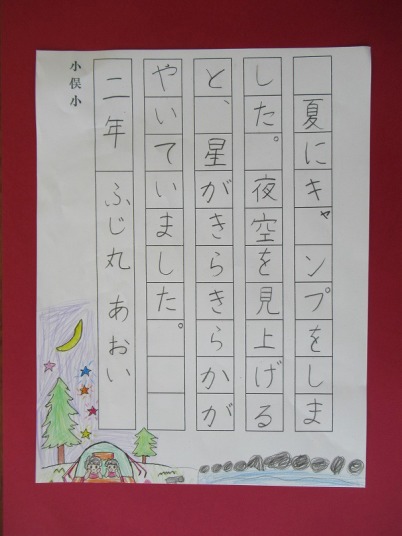 夏にキャンプをしま
した。夜空を見上げる
と、星がきらきらかが
やいていました。
二年 ふじ丸 あおい
小俣小